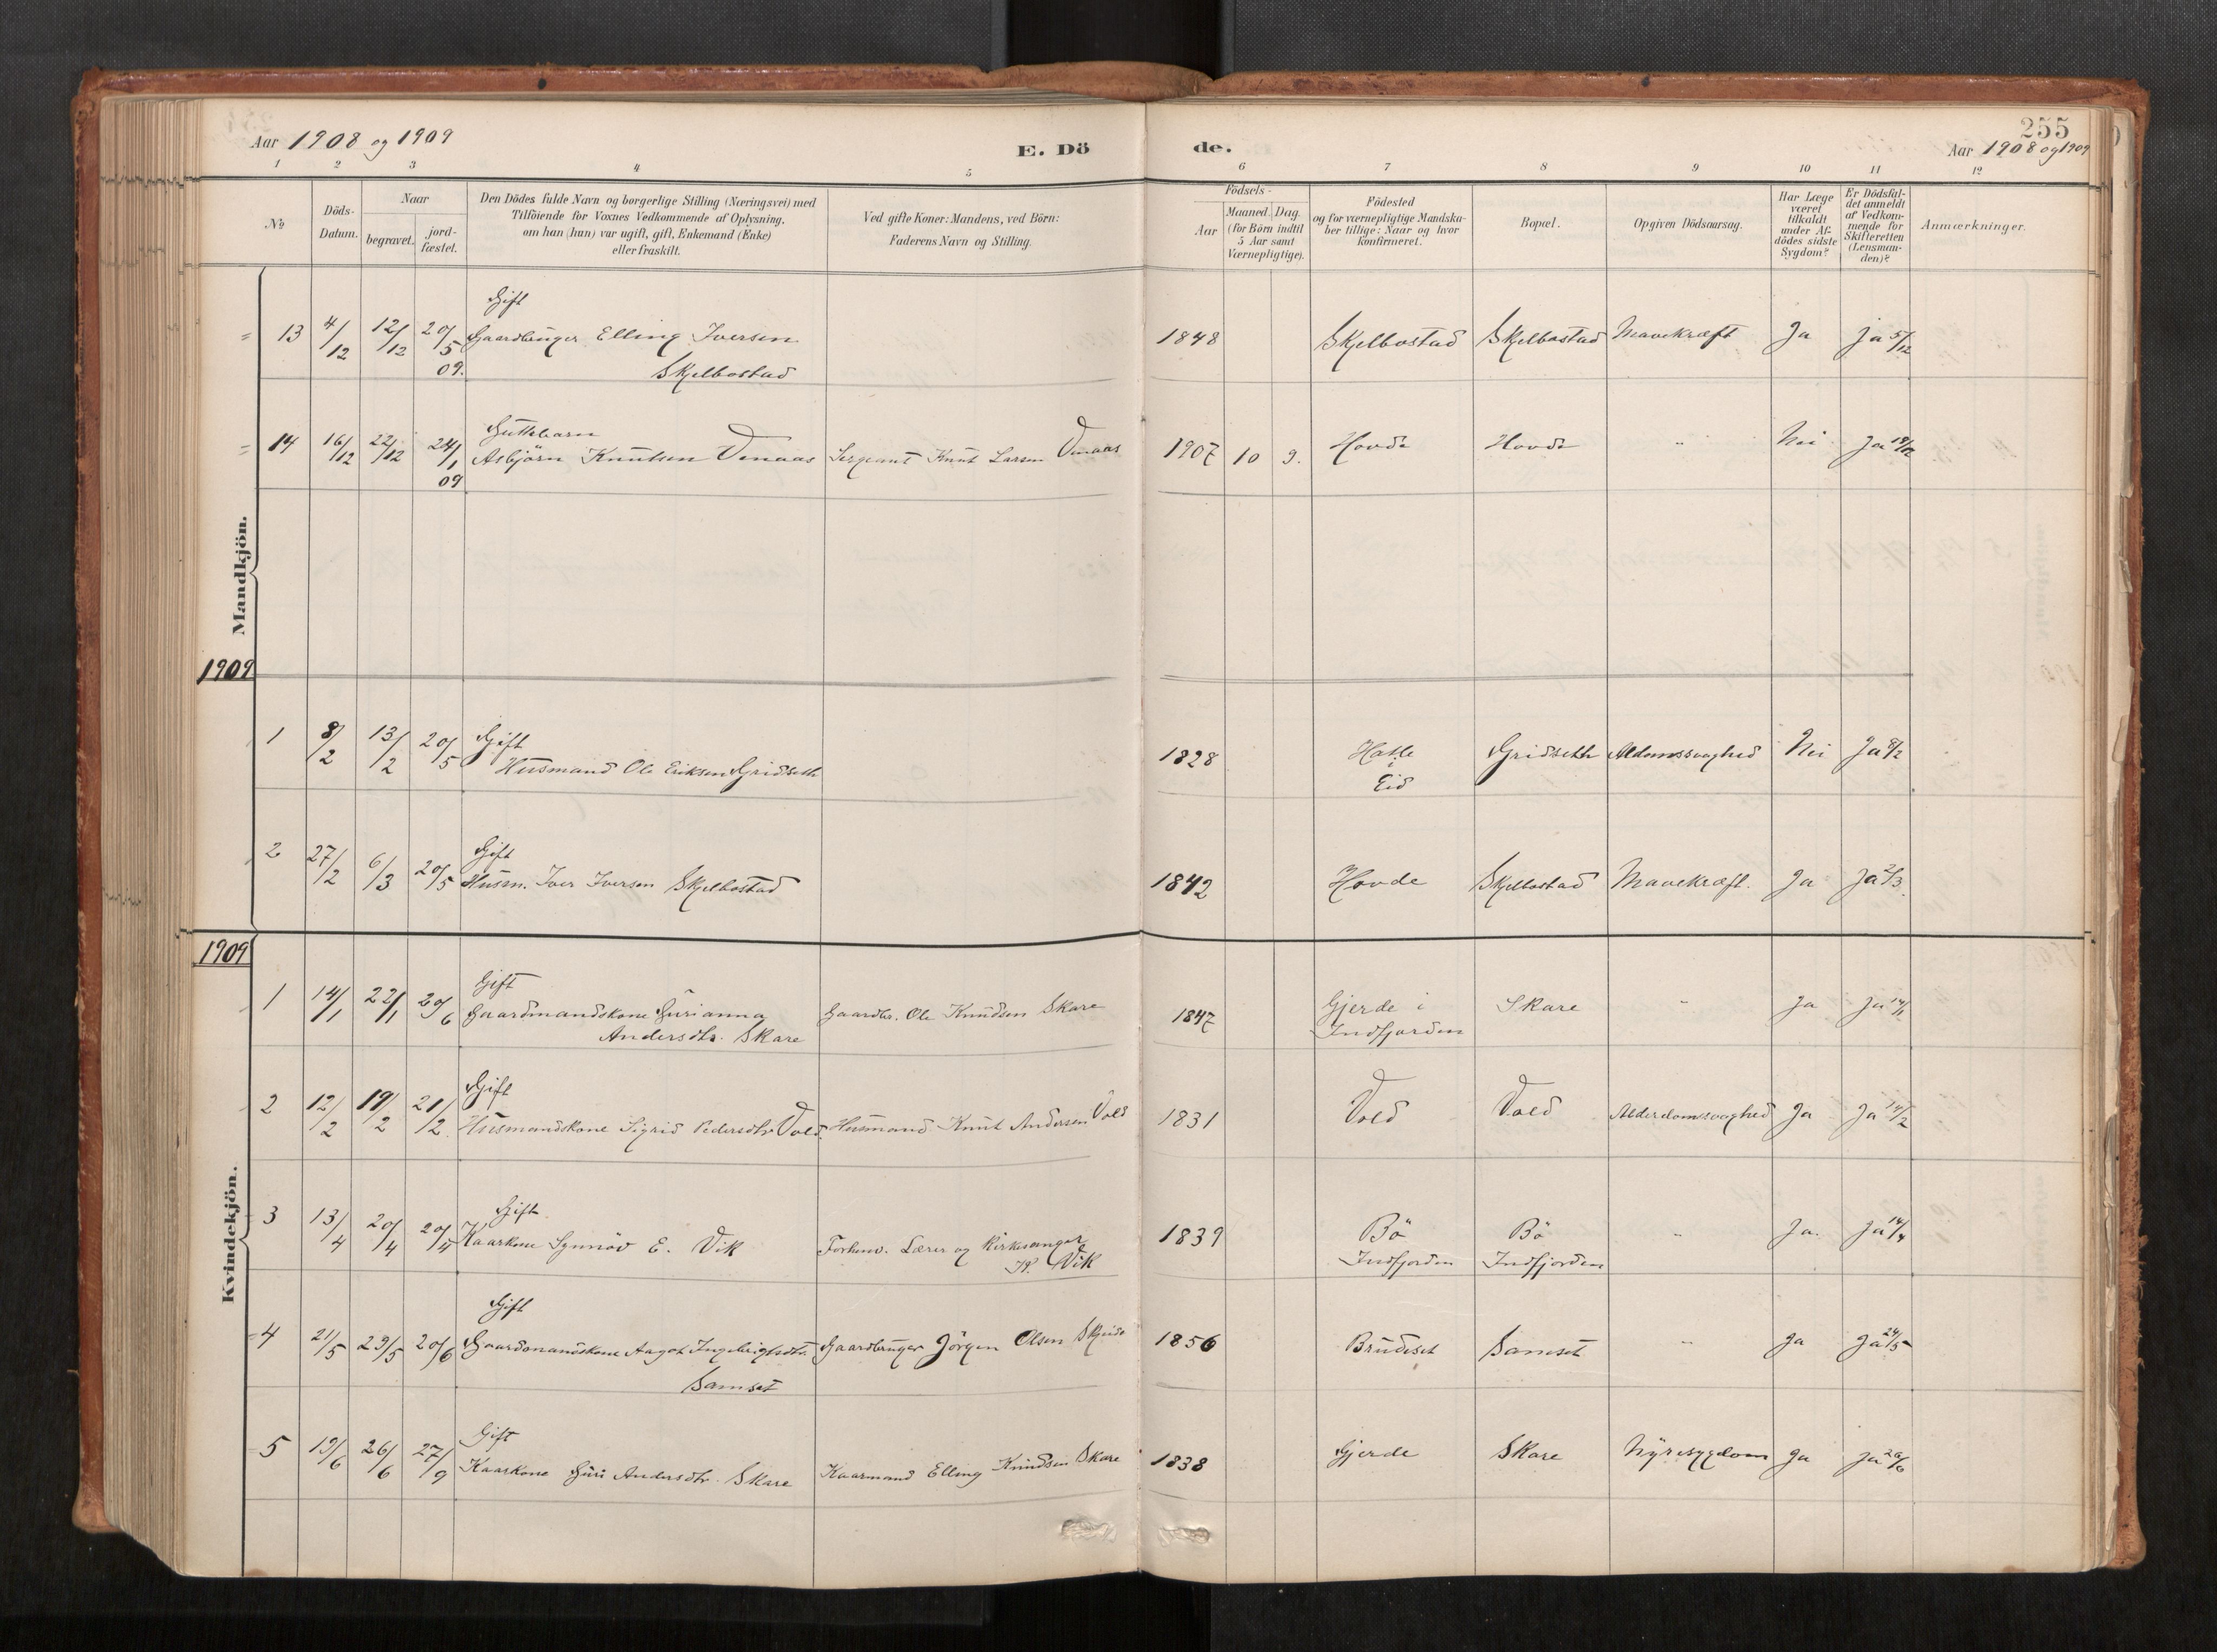 255
Aar 1908 og 1909
E. Dö
de.
Aar 1908 og 1909
1 2 3 4 5 6 7 8 9 10 11 12
No
Döds-
Datum.
Naar
begravet.
jord-
fæstet.
Den Dödes fulde Navn og borgerlige Stilling (Næringsvei) med
Tilföiende for Voxnes Vedkommende af Oplysning,
om han (hun) var ugift, gift, Enkemand (Enke)
eller fraskilt.
Ved gifte Koner: Mandens, ved Börn:
Faderens Navn og Stilling.
Födsels-
Aar
Maaned. Dag.
(for Börn indtil
5 Aar samt
Værnepligtige).
Födested
og for værnepligtige Mandska-
ber tillige: Naar og hvor
konfirmeret.
Bopæl.
Opgiven Dödsaarsag.
Har Læge
været
tilkaldt
under Af-
dödes sidste
Sygdom?
Er Dödsfal-
det anmeldt
af Vedkom-
mende for
Skifteretten
(Lensman-
den)?
Anmærkninger.
Mandkjön.
Gift
= 13 4/12 12/12 20/5 Gaardbruger Elling Iversen 1848 Skjelbostad Skjelbostad Mavekræft Ja ja 5/12
09. Skjelbostad
Guttebarn
= 14 16/12 22/12 24/1 Asbjörn Knutsen Venaas Sergeant Knut Larsen Venaas 1907 10 9. Hovde Hovde " Nei Ja
09
1909
1 8/2 13/2 20/5 Gift
Husmand Ole Eriksen Gridseth 1828 Hatle Gridseth Alderdomssvaghed Nei Ja 8/2
i
Eid
2 27/2 6/3 20/5 Gift
Husm. Iver Iversen Skjelbostad 1842 Hovde Skjelbostad Mavekræft. Ja Ja 2/3.
1909
Kvindekjön.
Gift
1 14/1 22/1 20/6 Gaardmandskone Gurianna Gaardbr. Ole Knudsen Skare 1847 Gjerde i Skare " Ja Ja 14/1
Andersdtr. Skare Indfjorden
Gift
2 12/2 19/2 21/2. Husmandskone Sigrid Pedersdtr Vold. Husmand Knut Andersen Vold 1831 Vold Vold Alderdomssvaghed Ja Ja 14/2
Gift
3 13/4 20/4 20/4 Kaarkone Synnöv E. Vik Forhenv. Lærer og Kirkesanger 1839 Bö Bö " Ja. Ja 14/4
Vik Indfjorden Indfjorden
Gift
4 21/5 29/5 20/6 Gaardmandskone Aagot Ingebrigtsdtr. Gaardbruger Jörgen Olsen 1856 Brudeset Samset " Ja Ja 24/5
Samset
Gift
5 19/6 26/6 27/9 Kaarkone Guri Andersdtr. Skare Kaarmand Elling Knudsen Skare 1838 Gjerde Skare Nyresygdom Ja Ja 20/6